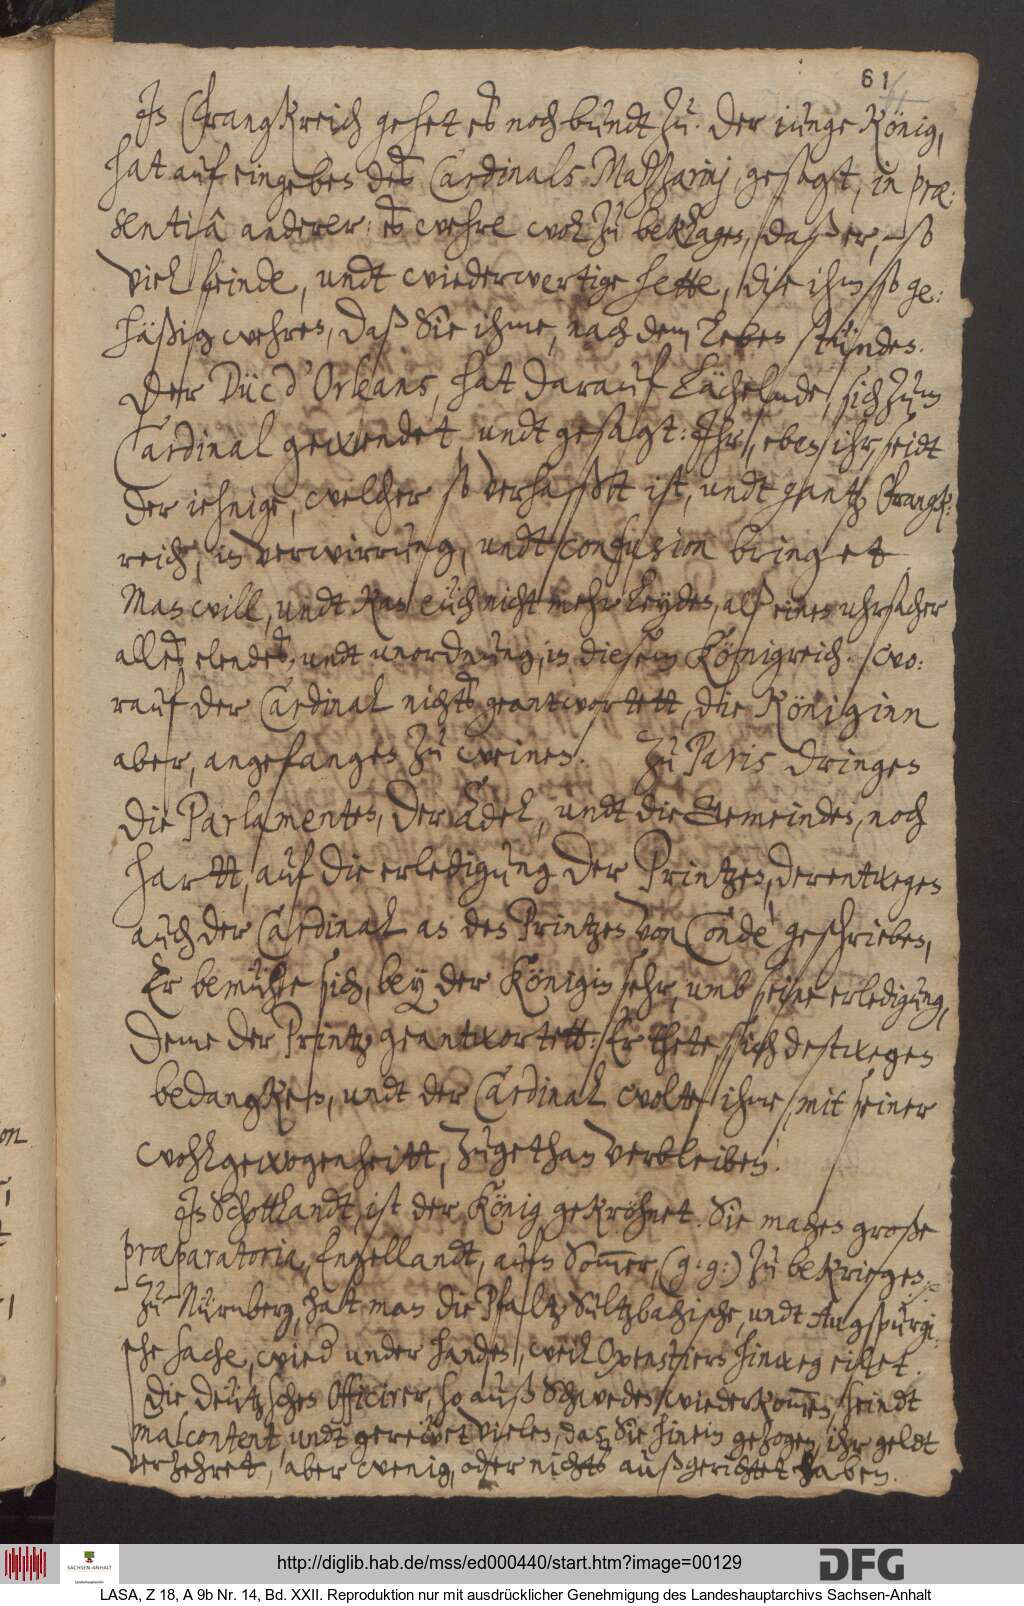 61
In Franckreich gehet es noch bundt zu. Der iunge König,
hat auf eingeben des Cardinals Mazzarinj, gesagt, in præ:
sentiâ anderer: es wehre wol zu beklagen, daß er, so
viel feinde, undt wiederwertige hette, die ihm so ge:
häßig wehren, daß Sie ihme, nach dem Leben stünden.
Der Düc d'Orleans, hat darauf Lächelnde, sich zum
Cardinal gewendet, undt gesagt: Ihr, eben ihr, seidt
der iehnige, welcher so verhaßt ist, undt gantz Franck:
reich, in verwirrung, undt confusion bringet.
Man will, undt kan euch nicht mehr Leyden, alß einen uhrsacher
alles elendes, undt unordnung, in diesem Königreich. Wo:
rauf der Cardinal nichts geantwortett, die Königinn
aber, angefangen zu weinen. Zu Paris dringen
die Parlamenten, der Adel, undt die Gemeinden, noch
hartt, auf die erledigung der Printzen, derentwegen
auch der Cardinal an den Printzen von Condè geschrieben,
Er bemühe sich, bey der Königin sehr, umb seine erledigung,
Deme der Printz geantwortett: Er thete, sich destwegen
bedancken, undt der Cardinal wolte ihme, mit seiner
wohlgewogenheitt, zugethan verbleiben.
In Schottlandt, ist der König gekröhnet. Sie machen große
præparatoria, Engellandt, aufn Som̅er, (g: g:) zu bekriegen.
Zu Nürnberg, hat man die Pfaltz Sultzbachische, undt Augspurgi:
sche sache, wieder under handen, weil Oxenstiern hinweg eilet.
Die deutzschen Officirer, so auß Schweden wiederkom̅en, seindt
malcontent, undt gereuet vielen, das Sie hinein gezogen, ihr geldt
verzehret, aber wenig, oder nichts außgerichtet haben.
on
http://diglib.hab.de/mss/ed000440/start.htm?image=00129
SACHSEN-ANHALT
Landeshauptarchiv
DFG
LASA, Z 18, A 9b Nr. 14, Bd. XXII. Reproduktion nur mit ausdrücklicher Genehmigung des Landeshauptarchivs Sachsen-Anhalt